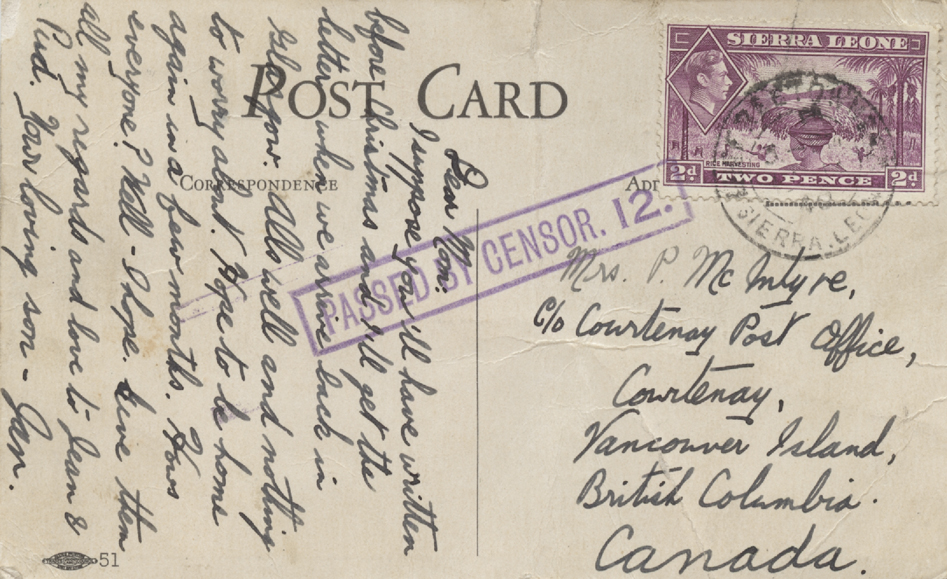 POST CARD
CORRESPONDENCE
SIERRA LEONE
RICE HARVESTING
2d TWO PENCE 2d
SIERRA.LEO
PASSED BY CENSOR. 12.
Dear Mom:
I suppose you'll have written
before Christmas and I'll get the
letter when we arrive back in
Glasgow. All's well and nothing
to worry about. Hope to be home
again in a few months. How's
everyone? Well - I hope. Give them
all my regards and love to Jean &
Your loving son -
Mrs. P. McIntyre,
C/o Courtenay Post Office,
Courtenay,
Vancouver Island,
British Columbia.
Canada.
51